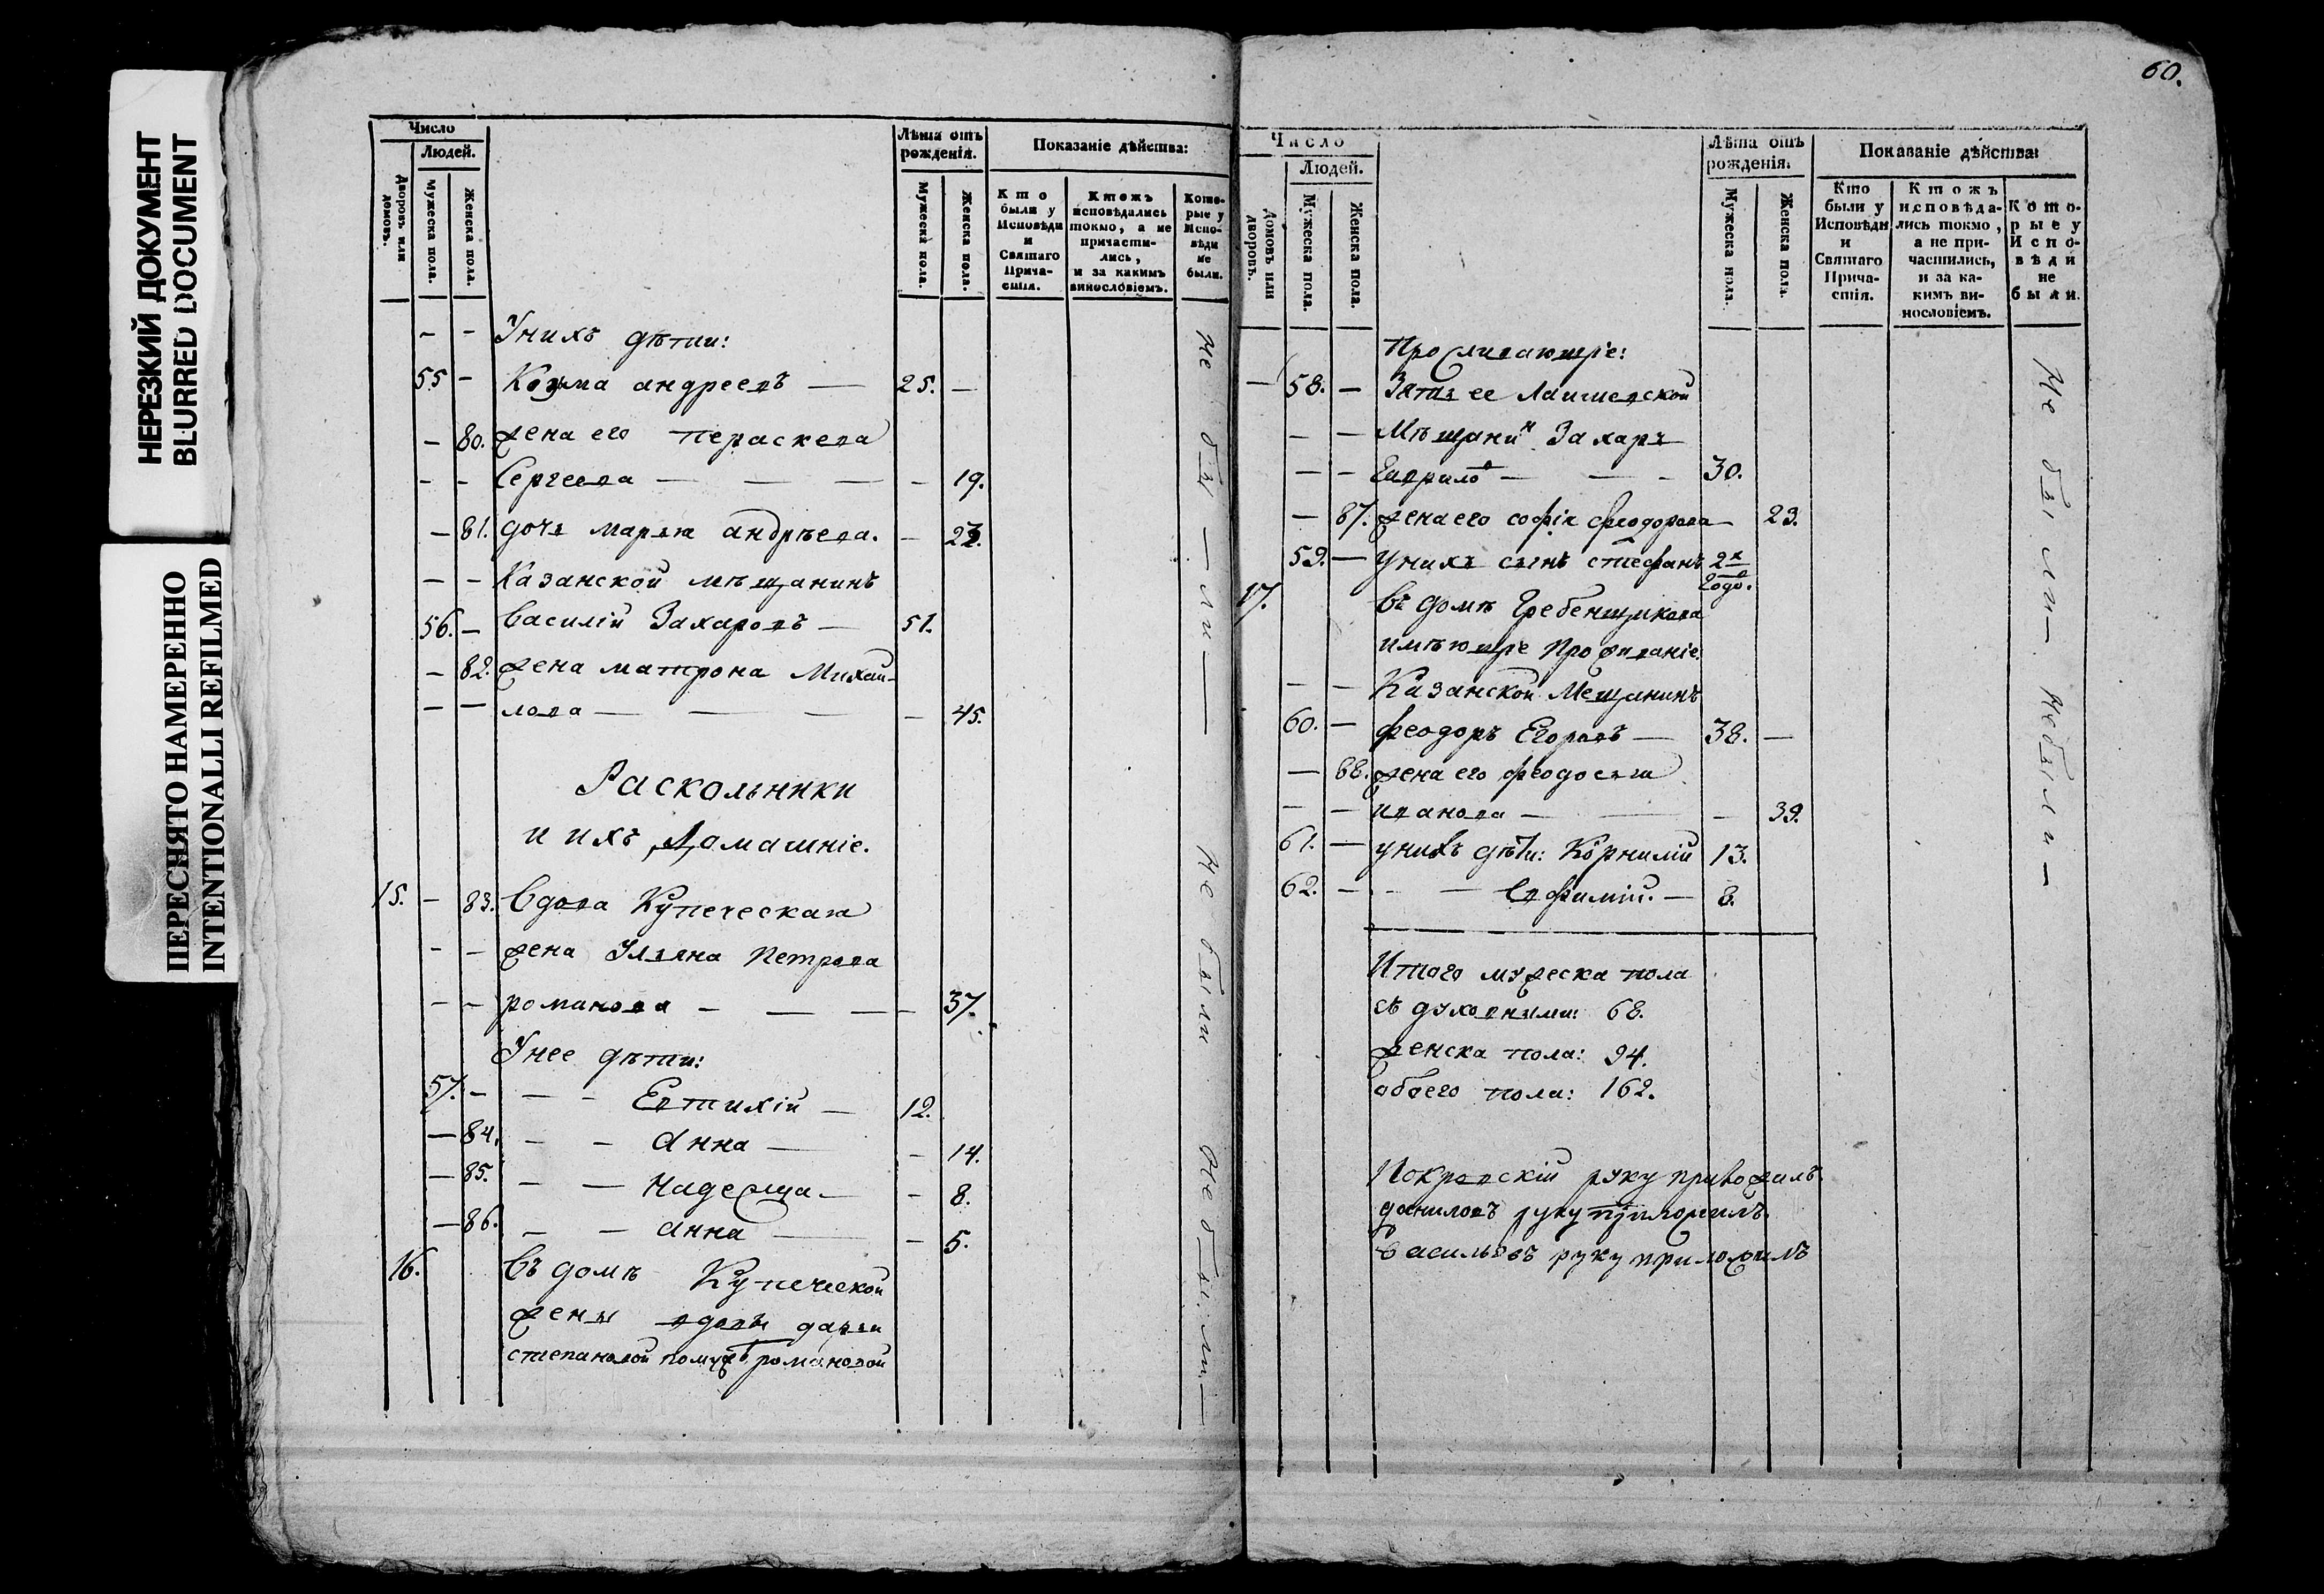 НЕРЕЗКИЙ ДОКУМЕНТ
BLURRED DOCUMENT
ПЕРЕСНЯТО НАМЕРЕННО
INTENTIONALLI REFILMED
Число
Людей.
Дворовъ или домовъ.
Мужеска пола.
Женска пола.
Лѣта отъ рожденія.
Мужеска пола.
Женска пола.
Показаніе дѣйства:
Кто были у Исповѣди и Святаго Причастія.
Ктожъ исповѣдались токмо, а не причастились, и за какимъ винословіемъ.
Которые у Исповѣди не были.
– – Унихъ дѣти:
55 – Козма андреевъ — 25. –
– 80. жена его пераскева
– – Сергеева — — — – 19.
– 81. дочь марья андрѣева. – 23.
– – Казанской мѣщанинъ
56. – Василій Захаровъ — 51.
– 82. жена матрона Михай-
– – лова — — — – 45.
Раскольники
и ихъ Домашніе.
15. – 83. Вдова Купеческая
– – жена Ульяна Петрова
– – романова – — — – 37.
Унее дѣти:
57. – — – Евтихій — 12.
– 84. – – Анна — – 14.
– 85. – — Надежда — – 8.
– 86. – – Анна — – 5.
16. Въ домѣ Купеческой
жены вдовы дарьи
степановой помужѣ романовой
не бы – ли —
не были
не бы. ли. —
60.
Число
Людей.
Домовъ или дворовъ.
Мужеска пола.
Женска пола.
Лѣта отъ рожденія.
Мужеска пола.
Женска пола.
Показаніе дѣйства:
Кто были у Исповѣди и Святаго Причастія.
Ктожъ исповѣдались токмо, а не причастились, и за какимъ винословіемъ.
Которые у Исповѣди не были.
Проживающіе:
— 58. – Зять ее Лаишевской
– — Мѣщанинъ Захаръ
– – Гаврилов — – 30.
– 87. жена его софія феодорова — 23.
59. — унихъ сынъ стефанъ 2х годов.
17. Въ домѣ Гребенщикова
имѣющіе Проживаніе.
– – Казанской Мещанинъ
60. – феодоръ Егоровъ — 38. —
— 88. жена его феодосья
– – иванова — — – 39.
61. – унихъ дѣти: Корнилій 13.
62. – – — Евфимій. — 8.
Итого мужеска пола
съ духовными: 68.
женска пола: 94.
обоего пола: 162.
Покровскій руку приложилъ.
даниловъ руку приложилъ.
Васильевъ руку приложилъ
не бы. ли – не были –